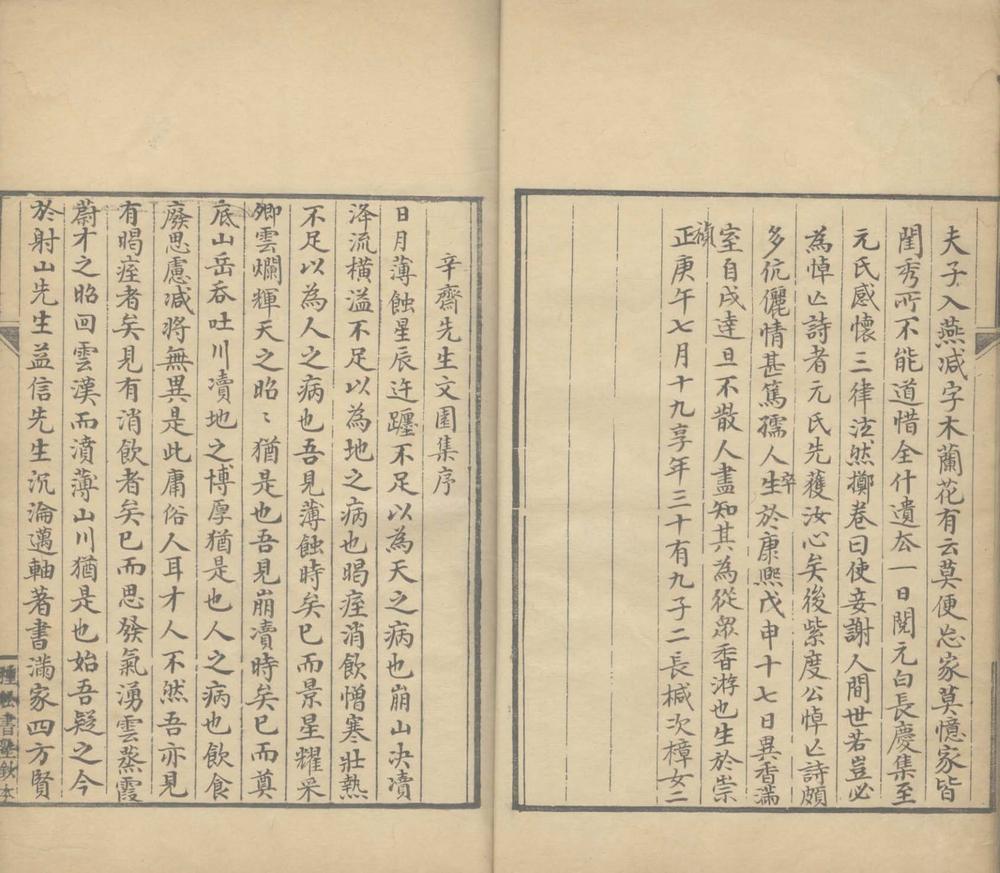 夫子入燕减字木蘭花有云莫便忘家莫憶家皆
閨秀所不能道惜全什遺忘一日閱元白長慶集至
元氏感懷三律泫然擲卷曰使妾謝人間世若豈必
為悼亡詩者元氏先獲汝心矣後紫度公悼亡詩頗
多伉儷情甚篤孺人生卒於康熙戊申十七日異香滿
室自戌達旦不散人盡知其為從衆香游也生於崇
禎
正庚午七月十九享年三十有九子二長棫次樟女二
辛齋先生文園集序
日月薄蝕星辰迕躔不足以為天之病也崩山决瀆
洚流橫溢不足以為地之病也暍痓消飲憎寒壯熱
不足以為人之病也吾見薄蝕時矣已而景星耀采
卿雲爛輝天之昭〻猶是也吾見崩瀆時矣已而奠
底山岳吞吐川瀆地之博厚猶是也人之病也飲食
廢思慮减將無異是此庸俗人耳才人不然吾亦見
有暍痓者矣見有消飲者矣已而思發氣湧雲蒸霞
蔚才之昭回雲漢而濆薄山川猶是也始吾疑之今
於射山先生益信先生沉淪薖軸著書滿家四方賢
種松書塾鈔本